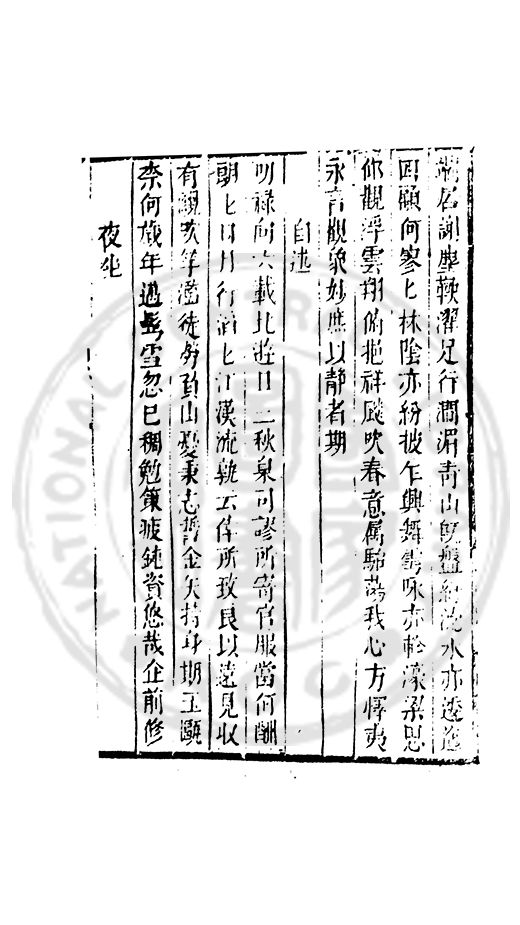 謝塵鞅濯足行澗湄青山既盤紆流水亦逶迤
回顧何寥匕林陰亦紛披乍興舞雩咏亦軫濠梁思
仰觀浮雲翔俯挹祥飈吹春意属駘蕩我心方懌夷
永言觀象妙庶以靜者期
自述
明祿向六載北遊日三秋臬司謬所寄官服當何酬
朝匕日月行滔匕江漢流執云侔所致良以遠見收
有覥吹竽濫徒労負山憂秉志誓金矢持身期玉甌
柰何歲年過髩雪忽已稠勉策疲鈍資悠哉企前修
夜坐
NATIONAL CENTRAL